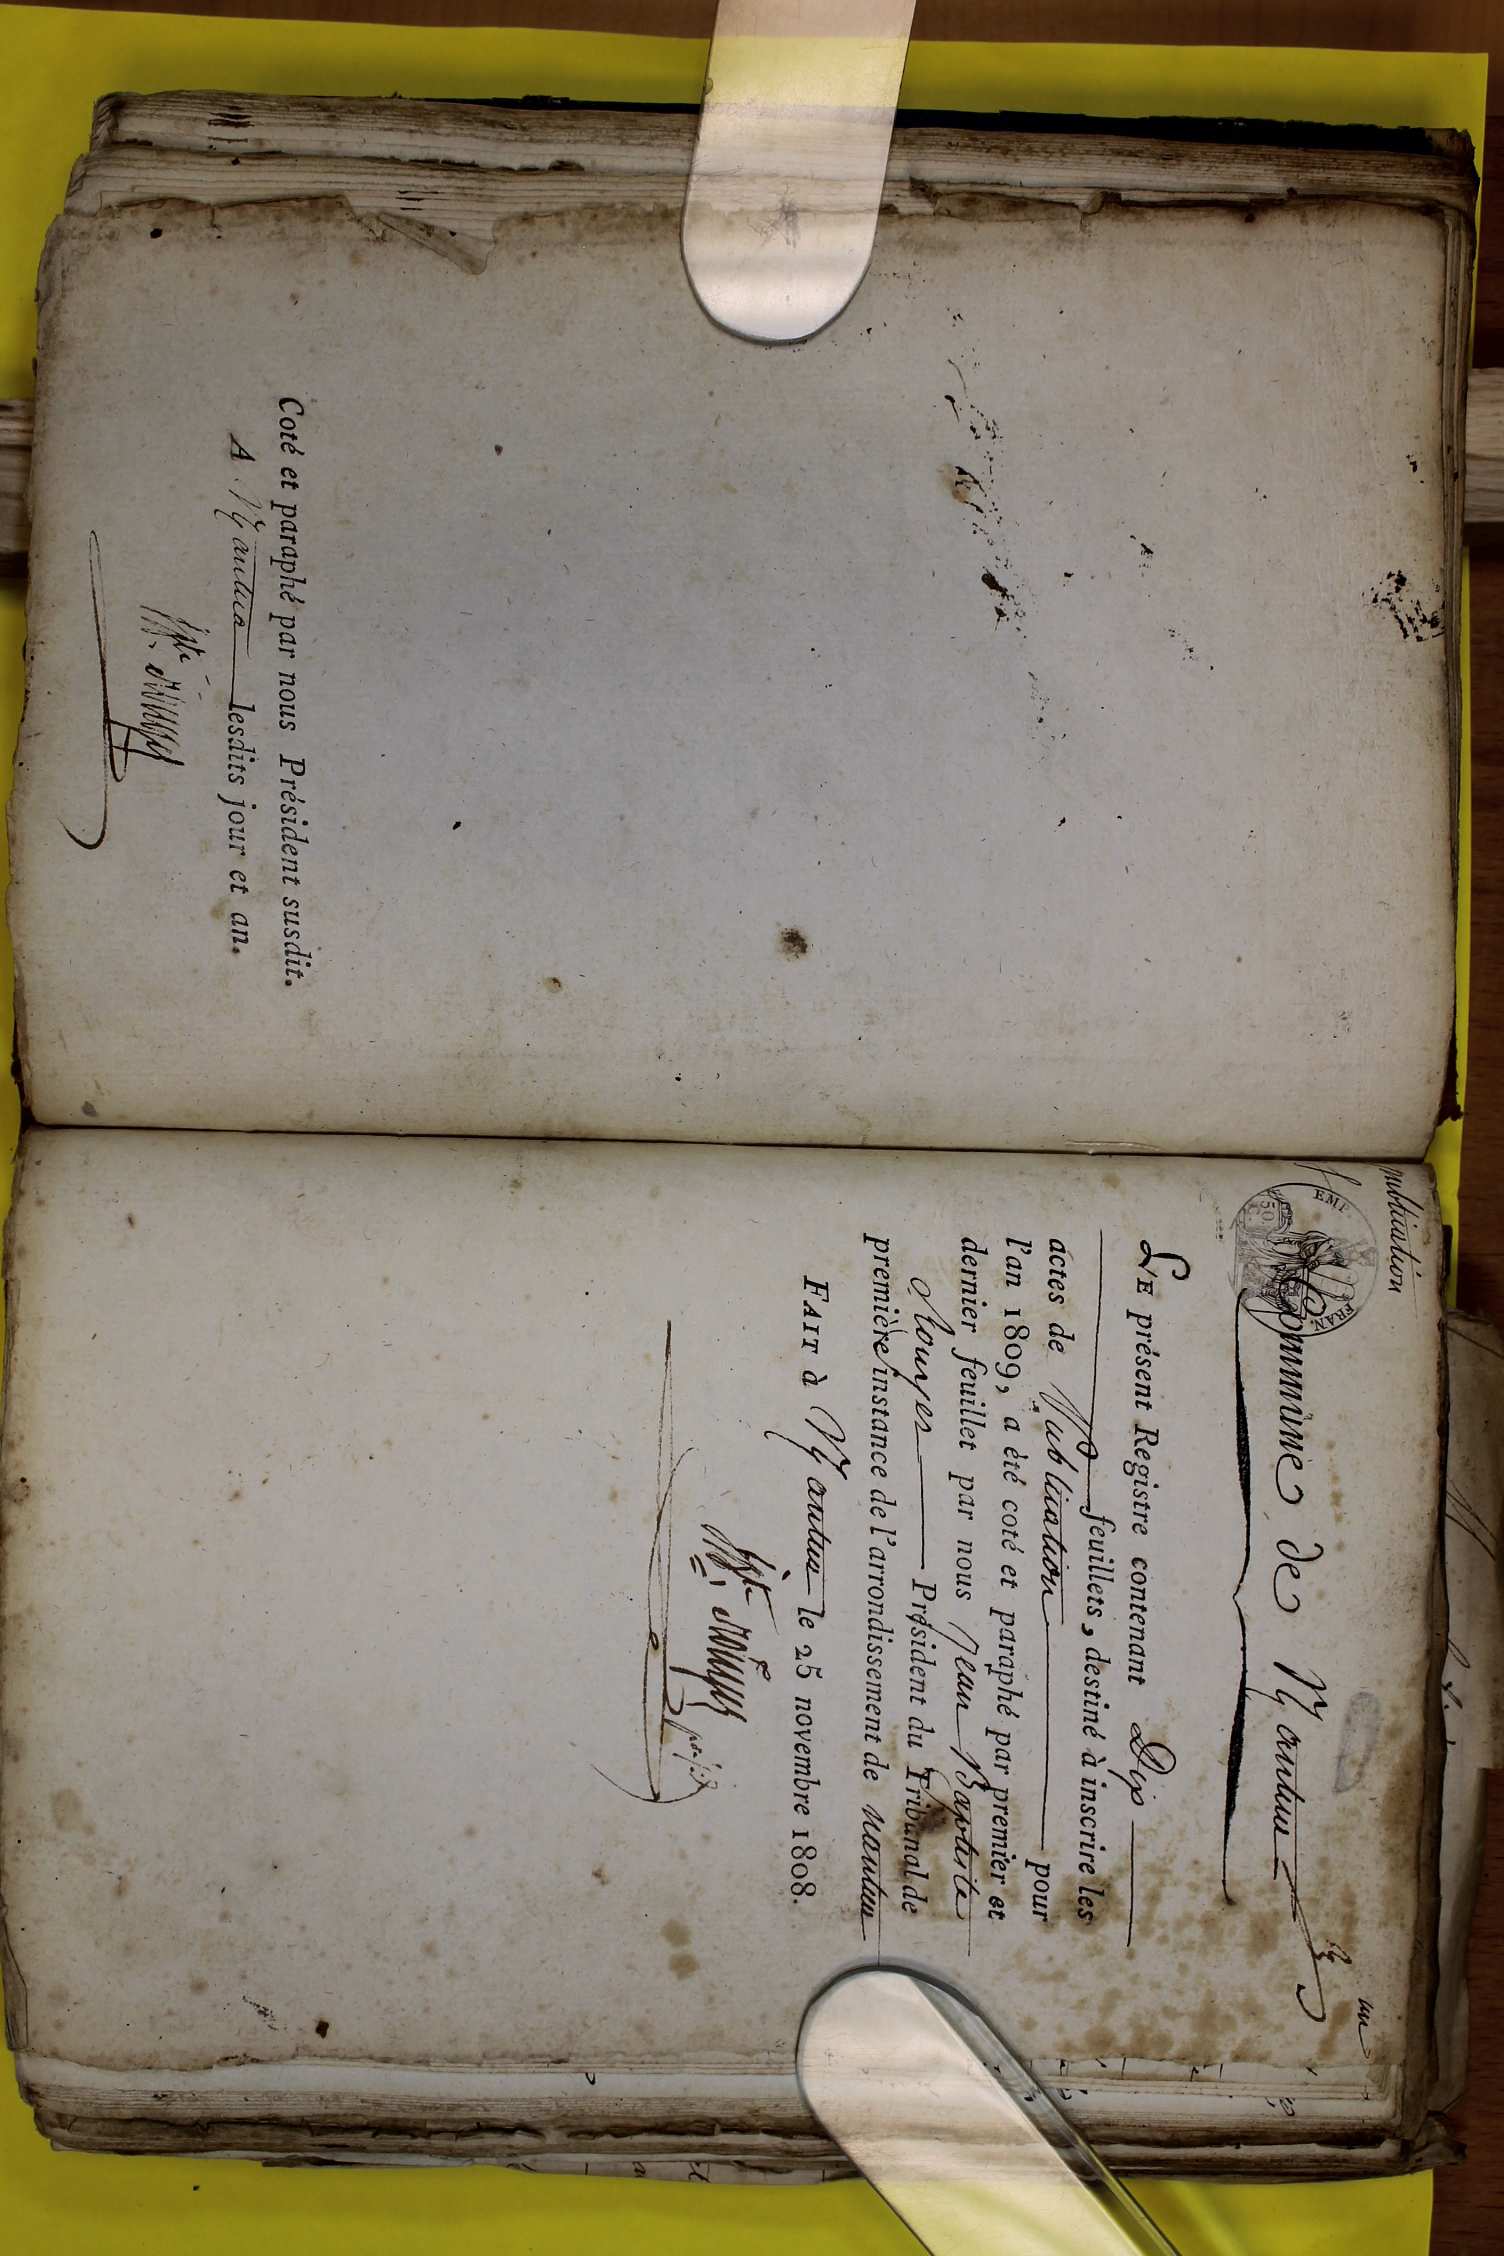 Coté et paraphé par nous Président susdit.
A Nantua lesdits jour et an.
publication
EMP. FRAN.
50
un
Commune de Nantua
LE présent Registre contenant Dix
feuillets, destiné à inscrire les
actes de Publication pour
l'an 1809, a été coté et paraphé par premier et
dernier feuillet par nous Jean Baptiste
Rouyer Président du Tribunal de
première instance de l'arrondissement de nantua
FAIT à Nantua le 25 novembre 1808.